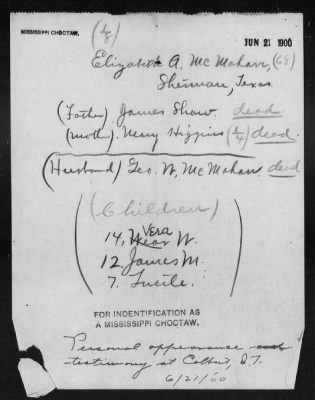 MISSISSIPPI CHOCTAW,
(1/8)
JUN 21 1900
Elizabeth A. McMahan, (68)
Sherman, Texas
(Father) James Shaw. dead
(Moth) Mary Higgins (1/4) dead.
(Husband) Geo. W. McMahan dead
(Children)
14, Vera W.
12, James M.
7. Lucile.
FOR INDENTIFICATION AS
A MISSISSIPPI CHOCTAW.
Personal appearance and
testimony at Colbert, I.T.
6/21/00